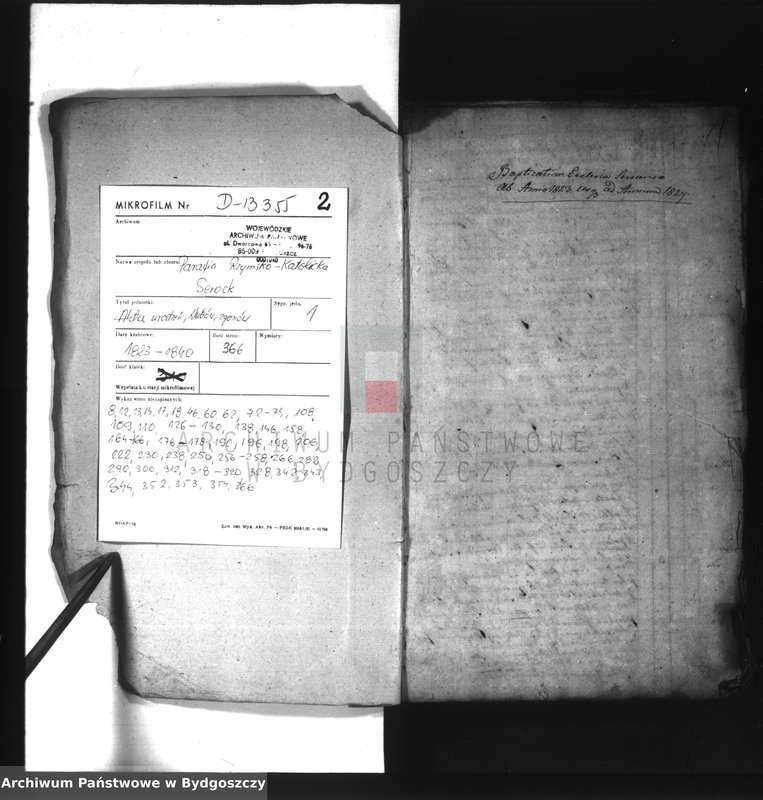 MIKROFILM Nr D-13355 2
Archiwum
WOJEWÓDZKIE
ARCHIWUM
ul. Dworcowa 65
85-009
Nazwa zespołu lub zbioru Parafia Rzymsko-Katolicka
Serock
Tytuł jednostki: Sygn. jedn.
Akta urodzeń, ślubów, zgonów 1
Daty krańcowe: Ilość stron: Wymiary:
1823-1840 366
Ilość klatek:
Wypełnia k.t. stacji mikrofilmowej
Wykaz stron niezapisanych:
8, 12, 13, 14, 17, 18, 46, 60, 62, 72-74, 108,
109, 110, 126-130, 138, 146, 158,
164-166, 176-178, 190, 196, 198, 206
222, 230, 238, 250, 256-258, 266, 282
290, 300, 312, 318-320, 328, 342-343,
344, 352, 353, 354, 366
1
Ab Anno 1823 usq ad Annum 1827.
ARCHIWUM PAŃSTWOWE
W BYDGOSZCZY
Archiwum Państwowe w Bydgoszczy